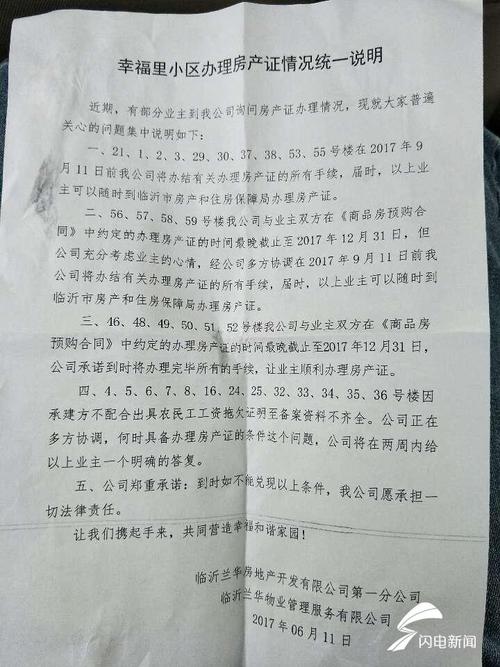 幸福里小区办理房产证情况统一说明
近期，有部分业主到我公司询问房产证办理情况，现就大家普遍
关心的问题集中说明如下：
一、21、1、2、3、29、30、37、38、53、55号楼在2017年9
月11日前我公司将办结有关办理房产证的所有手续，届时，以上业
主可以随时到临沂市房产和住房保障局办理房产证。
二、56、57、58、59号楼我公司与业主双方在《商品房预购合
同》中约定的办理房产证的时间最晚截止至2017年12月31日，但
公司充分考虑业主的心情，经公司多方协调在2017年9月11日前我
公司将办结有关办理房产证的所有手续，届时，以上业主可以随时到
临沂市房产和住房保障局办理房产证。
三、46、48、49、50、51、52号楼我公司与业主双方在《商品房
预购合同》中约定的办理房产证的时间最晚截止至2017年12月31日，
公司承诺到时将办理完毕所有的手续，让业主顺利办理房产证。
四、4、5、6、7、8、16、24、25、32、33、34、35、36号楼因
承建方不配合出具农民工工资拖欠证明至备案资料不齐全。公司正在
多方协调，何时具备办理房产证的条件这个问题，公司将在两周内给
以上业主一个明确的答复。
五、公司郑重承诺：到时如不能兑现以上条件，我公司愿承担一
切法律责任。
让我们携起手来，共同营造幸福和谐家园！
临沂兰华房地产开发有限公司第一分公司
临沂兰华物业管理服务有限公司
2017年06月11日
闪电新闻